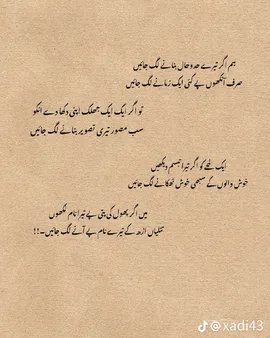 ہم اگر تیرے خدوخال بنانے لگ جائیں
صرف آنکھوں پے کئی ایک زمانے لگ جائیں
تو اگر ایک ایک جھلک اپنی دکھا دے انکو
سب مصور تیری تصویر بنانے لگ جائیں
ایک لمحے کو اگر تیرا تبسم دیکھیں
ہوش والوں کے سبھی ہوش ٹھکانے لگ جائیں
میں اگر پھول کی پتی پے تیرا نام لکھوں
تتلیاں اڑھ کے تیرے نام پے آنے لگ جائیں۔!!
@xadi43